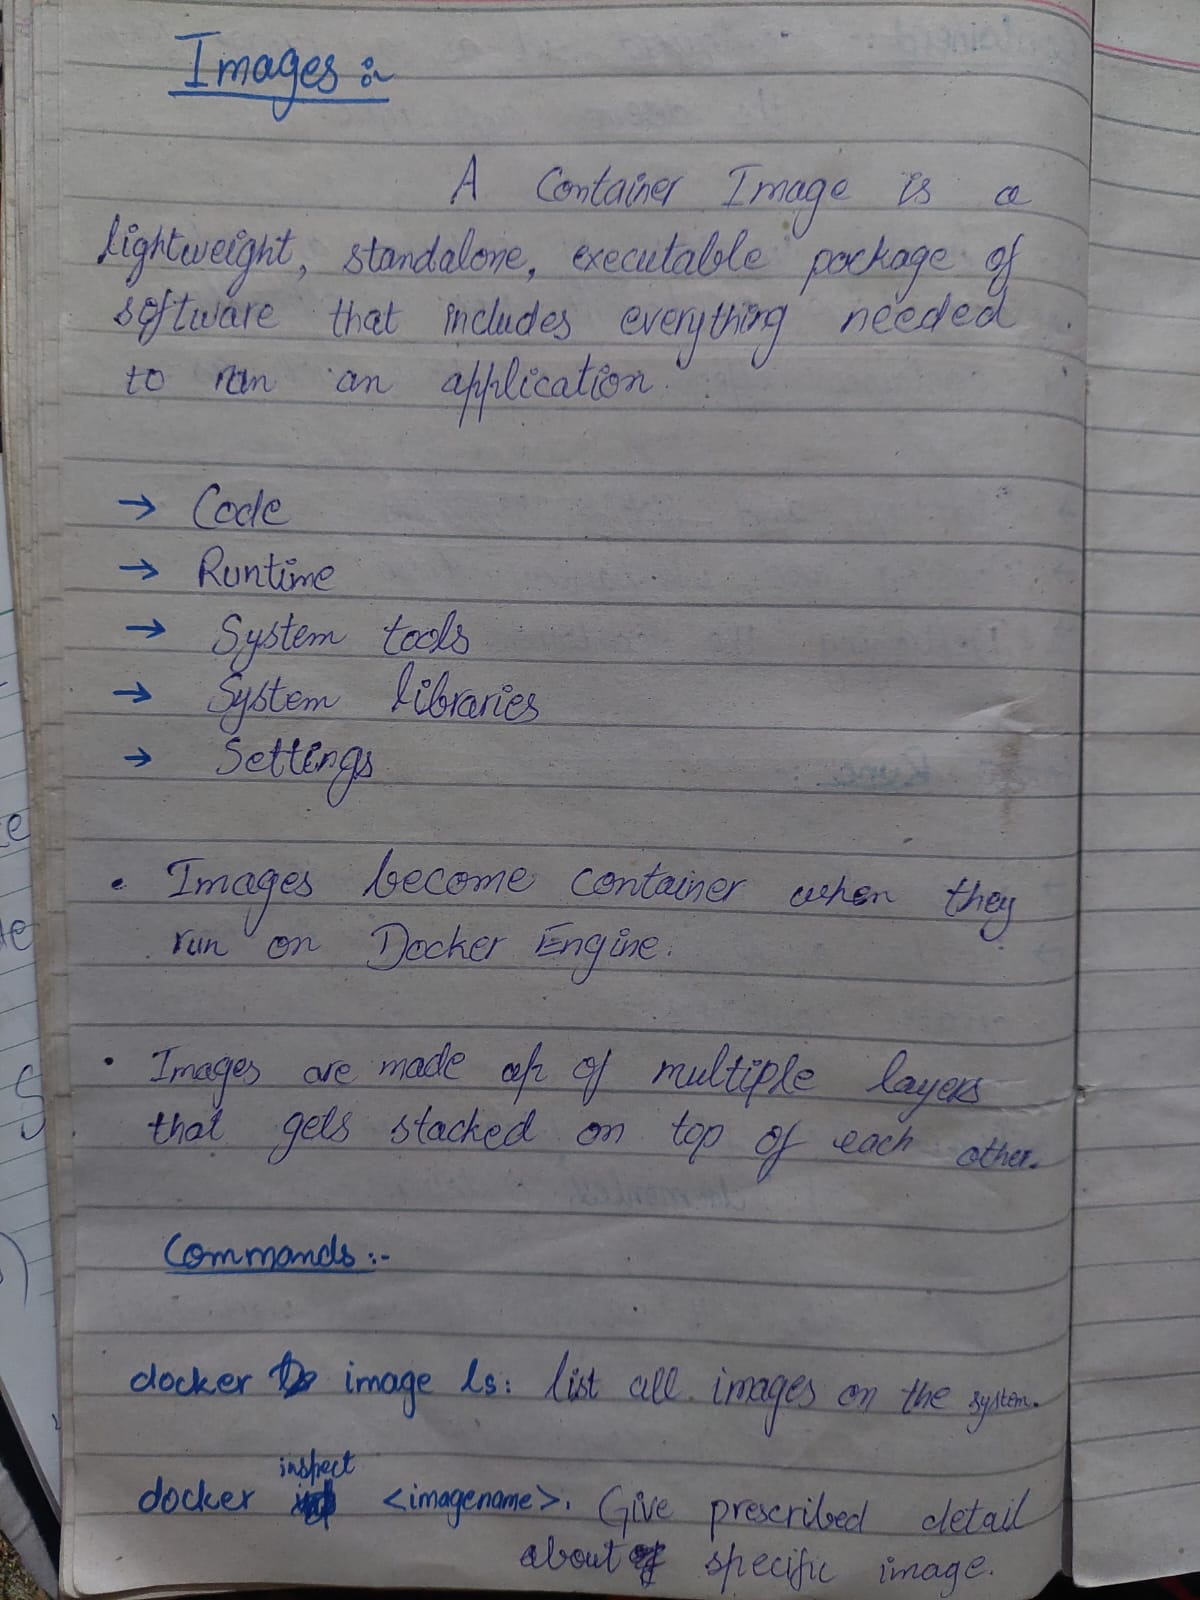 Images :-
A Container Image is a
lightweight, standalone, executable package of
software that includes everything needed
to run an application.
→ Code
→ Runtime
→ System tools
→ System libraries
→ Settings
• Images become container when they
run on Docker Engine.
• Images are made up of multiple layers
that gets stacked on top of each other.
Commands :-
docker image ls: list all images on the system.
inspect
docker <imagename>. Give prescribed detail
about specific image.